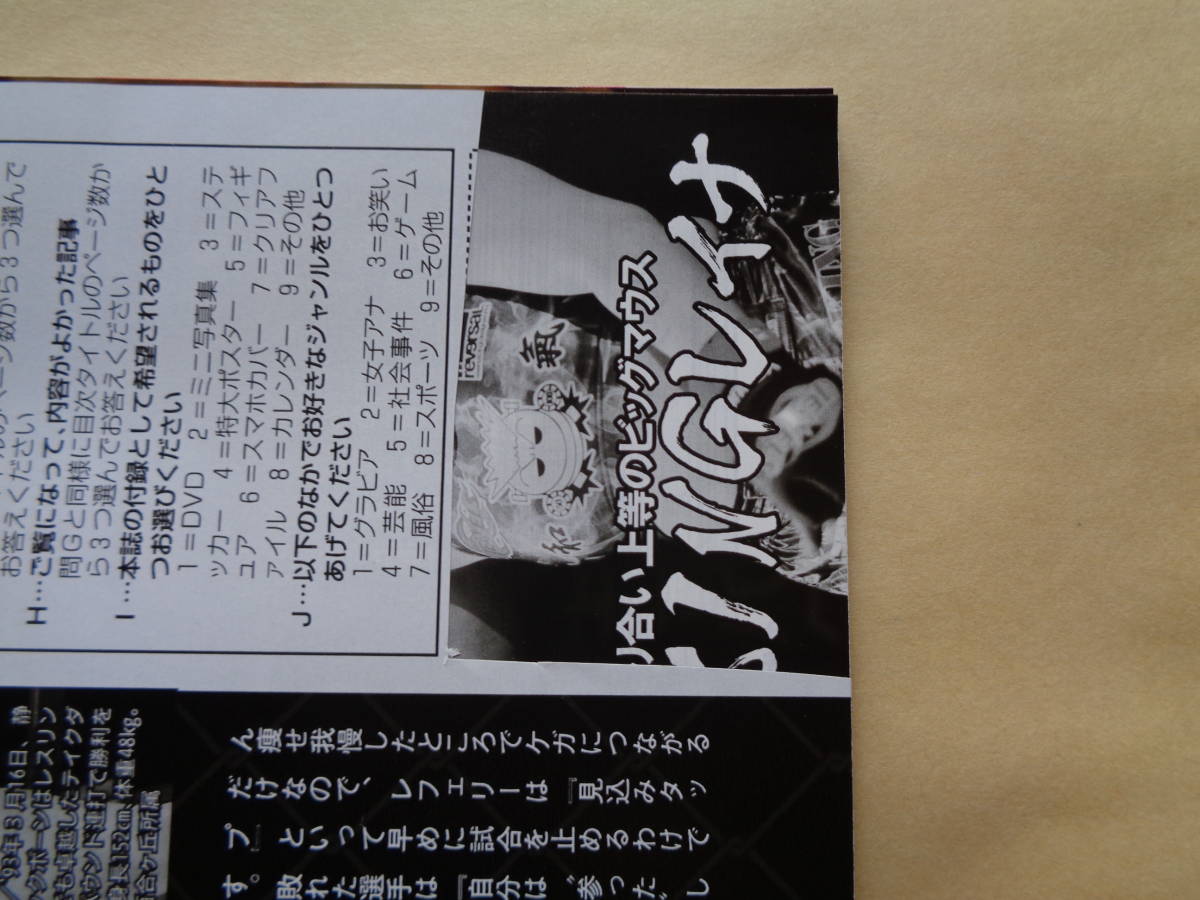 お答えください
H…ご覧になって、内容がよかった記事
問Gと同様に目次タイトルのページ数か
ら3つ選んでお答えください
I…本誌の付録として希望されるものをひと
つお選びください
1=DVD 2=ミニ写真集 3=ステ
ッカー 4=特大ポスター 5=フィギ
ュア 6=スマホカバー 7=クリアフ
ァイル 8=カレンダー 9=その他
J…以下のなかでお好きなジャンルをひとつ
あげてください
1=グラビア 2=女子アナ 3=お笑い
4=芸能 5=社会事件 6=ゲーム
7=風俗 8=スポーツ 9=その他
reversal
氣
和
合い上等のビッグマウス
NGレイナ
93年3月16日、静
ックボーンはレスリン
も卓越したテイクダ
ウンド連打で勝利を
長152cm、体重48kg。
ん痩せ我慢したところでケガにつながる
だけなので、レフェリーは『見込みタッ
プ』といって早めに試合を止めるわけで
す。敗れた選手は『自分は“参った”し